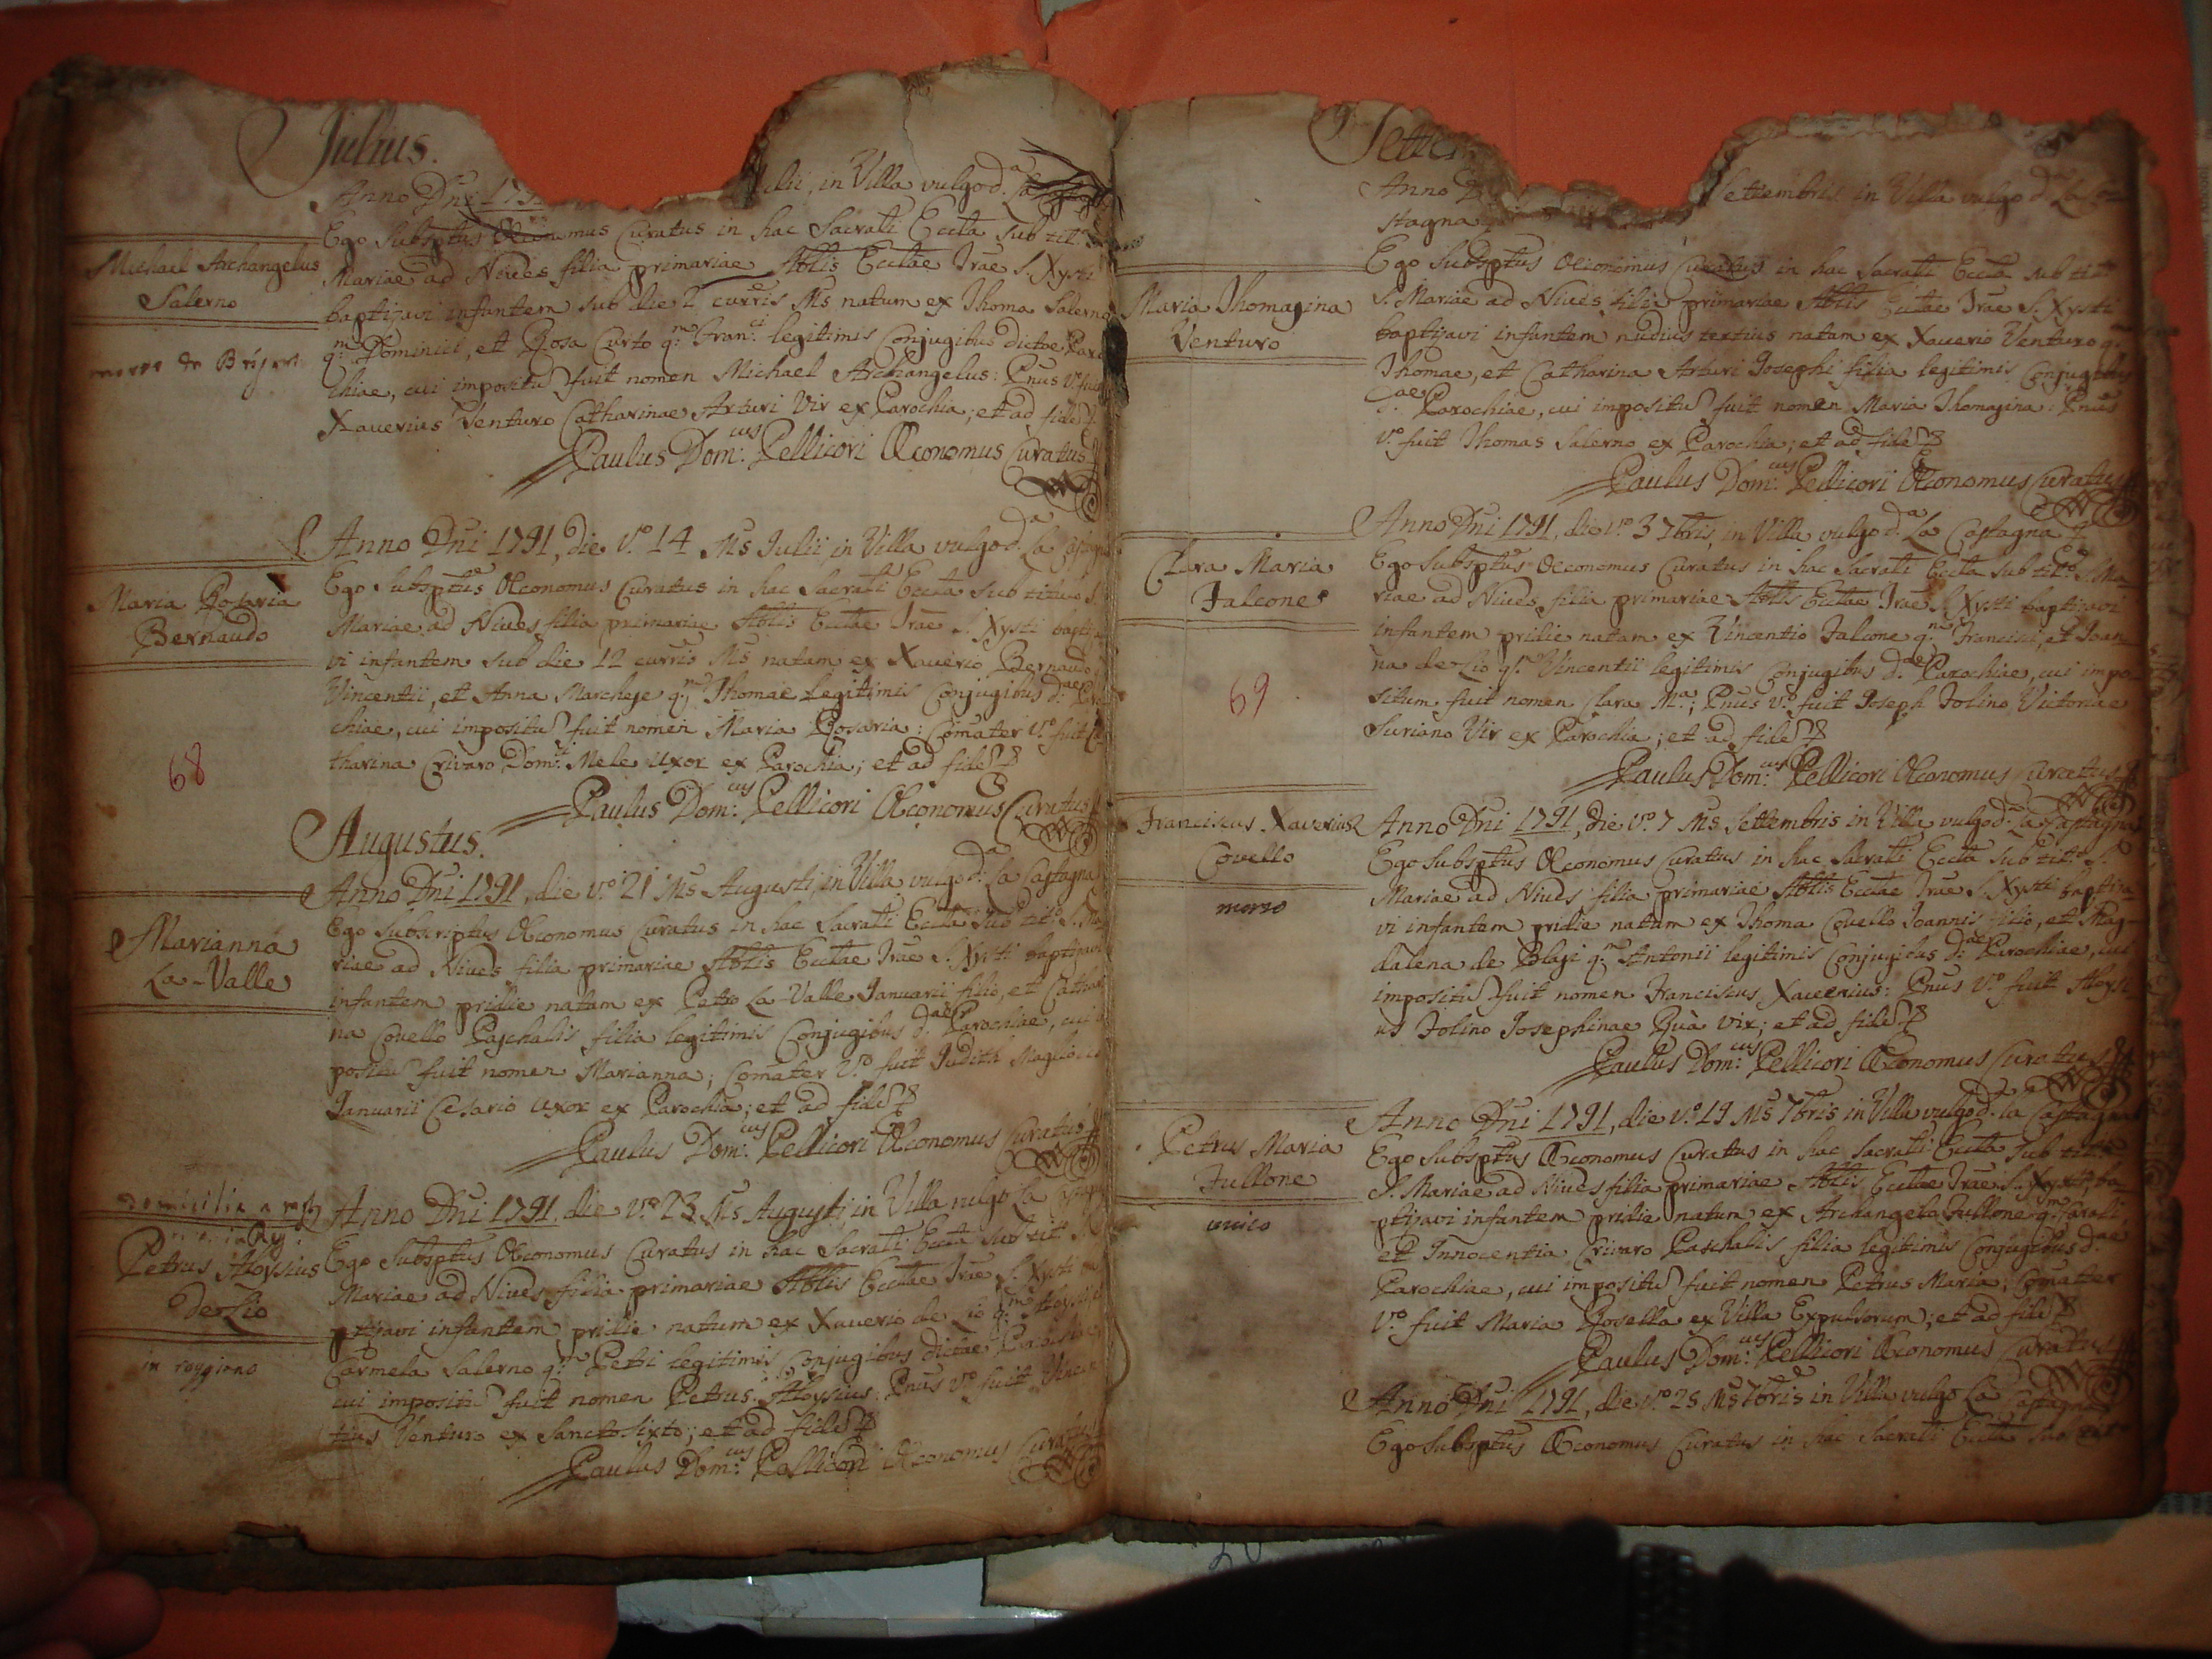 Julius.
Anno Dñi 179
lii, in Villa vulgo d.ª La
Ego Subsptus Œconomus Curatus in hac Sacrali Eccta Sub tit.º
Michael Archangelus
Salerno
Mariae ad Nives filia primariae Abtis Ecctae Irae S. Xysti
baptizavi infantem sub die 2 curris Ms natum ex Thoma Salerno
q.m Dominici, et Rosa Curto q.m Fran.ci legitimis Conjugibus dictae Paro
chiae, cui impositu fuit nomen Michael Archangelus: Pnus V.º fuit
Xaverius Venturo Catharinae Arturi Vir ex Parochia; et ad fide
Paulus Dom:cus Pellicori Œconomus Curatus
Anno Dñi 1791, die V.º 14 Ms Julii, in Villa vulgo d.ª La Castagna
Maria Rosaria
Bernaudo
Ego Subsptus Œconomus Curatus in hac Sacrali Eccta sub titulo S.
Mariae ad Nives filia primariae Abtis Ecctae Irae S. Xysti baptiza
vi infantem sub die 12 curris Ms natam ex Xaverio Bernaudo
Vincentii, et Anna Marchese q.m Thomae legitimis Conjugibus d.ae Paro
chiae, cui impositu fuit nomen Maria Rosaria: Comater V.º fuit Ca
tharina Crivaro Dom:ci Mele uxor ex Parochia; et ad fide
68
Paulus Dom:cus Pellicori Œconomus Curatus
Augustus.
Anno Dñi 1791, die v.º 21 Ms Augusti, in Villa vulgo d.ª La Castagna
Marianna
La-Valle
Ego Subscriptus Œconomus Curatus in hac Sacrali Eccta sub tit.º S. Ma
riae ad Nives filia primariae Abtis Ecctae Irae S. Xysti baptizavi
infantem pridie natam ex Petro La-Valle Januarii filio, et Cathari
na Covello Paschalis filia legitimis Conjugibus d.ae Parochiae, cui
positu fuit nomen Marianna; Comater V.º fuit Judith
Januarii Cesario uxor ex Parochia; et ad fide
Paulus Dom:cus Pellicori Œconomus Curatus
Anno Dñi 1791, die V.º 23 Ms Augusti, in Villa vulgo La
Petrus Aloysius
De Lio
in reggiono
Ego Subsptus Œconomus Curatus in hac Sacrali Eccta sub tit S.
Mariae ad Nives filia primariae Abtis Ecctae Irae S. Xysti ba
ptizavi infantem pridie natum ex Xaverio de Lio q.m Aloysii, et
Carmela Salerno q.m Petri legitimis Conjugibus dictae Parochiae
cui impositu fuit nomen Petrus Aloysius: Pnus V.º fuit Vincen
tius Venturo ex Sancto Sixto; et ad fide
Paulus Dom:cus Pellicori Œconomus Curatus
Settem
Anno
Settembris in Villa vulgo d.ª La Ca
stagna
Maria Thomagina
Venturo
Ego Subsptus Œconomus Curatus in hac Sacrali Eccta sub tit.º
S. Mariae ad Nives filia primariae Abtis Ecctae Irae S. Xysti
baptizavi infantem nudius tertius natam ex Xaverio Venturo q.m
Thomae, et Catharina Arturi Josephi filia legitimis Conjugibus
d.ae Parochiae, cui impositu fuit nomen Maria Thomagina: Pnus
V.º fuit Thomas Salerno ex Parochia; et ad fide
Paulus Dom:cus Pellicori Œconomus Curatus
Anno Dñi 1791, die v.º 3 7bris, in Villa vulgo d.ª La Castagna
Clara Maria
Falcone
Ego Subsptus Œconomus Curatus in hac Sacrali Eccta sub tit.º S. Ma
riae ad Nives filia primariae Abtis Ecctae Irae S. Xysti baptizavi
infantem pridie natam ex Vincentio Falcone q.m Francisci, et Joan
na de Lio q.m Vincentii legitimis Conjugibus d.ae Parochiae, cui impo
situm fuit nomen Clara M.ª; Pnus V.º fuit Joseph Tolino Victoriae
Suriano Vir ex Parochia; et ad fide
69
Paulus Dom:cus Pellicori Œconomus Curatus
Anno Dñi 1791, die V.º 7 Ms Settembris in Villa vulgo d.ª La Castagna
Franciscus Xaverius
Covello
morto
Ego Subsptus Œconomus Curatus in hac Sacrali Eccta sub tit.º S.
Mariae ad Nives filia primariae Abtis Ecctae Irae S. Xysti baptiza
vi infantem pridie natum ex Thoma Covello Joannis filio, et Mag-
dalena de Blasi q.m Antonii legitimis Conjugibus d.ae Parochiae, cui
impositu fuit nomen Franciscus Xaverius: Pnus V.º fuit Aloysi
us Tolino Josephinae Guà Vir; et ad fide
Paulus Dom:cus Pellicori Œconomus Curatus
Anno Dñi 1791, die v.º 19 Ms 7bris, in Villa vulgo d.ª la Castagna
Petrus Maria
Fullone
unico
Ego Subsptus Œconomus Curatus in hac Sacrali Eccta sub tit.º
S. Mariae ad Nives filia primariae Abtis Ecctae Irae S. Xysti, ba
ptizavi infantem pridie natum ex Archangelo Fullone q.m
et Innocentia Crivaro Paschalis filia legitimis Conjugibus d.ae
Parochiae, cui impositu fuit nomen Petrus Maria; Comater
V.º fuit Maria Rosella ex Villa Expulsorum; et ad fide
Paulus Dom:cus Pellicori Œconomus Curatus
Anno Dñi 1791, die V.º 25 Ms 7bris in Villa vulgo La Castagna
Ego Subsptus Œconomus Curatus in hac Sacrali Eccta sub tit